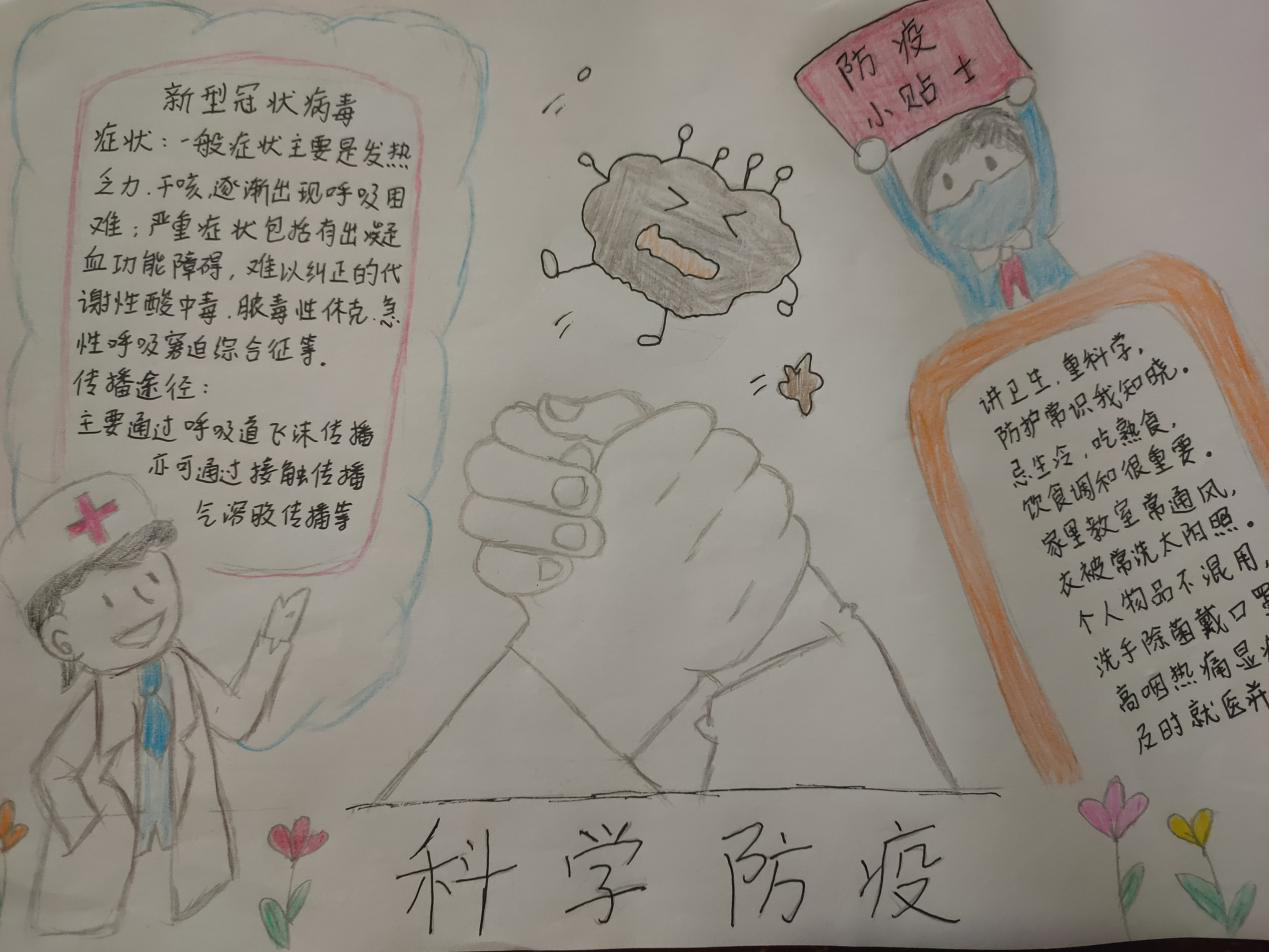 新型冠状病毒
症状：一般症状主要是发热
乏力.干咳.逐渐出现呼吸困
难；严重症状包括有出凝
血功能障碍，难以纠正的代
谢性酸中毒.脓毒性休克.急
性呼吸窘迫综合征等.
传播途径：
主要通过呼吸道飞沫传播
亦可通过接触传播
气溶胶传播等
防疫
小贴士
讲卫生.重科学，
防护常识我知晓。
忌生冷，吃熟食，
饮食调和很重要。
家里教室常通风，
衣被常洗太阳照。
个人物品不混用，
洗手除菌戴口罩
高咽热痛显
及时就医
科学防疫